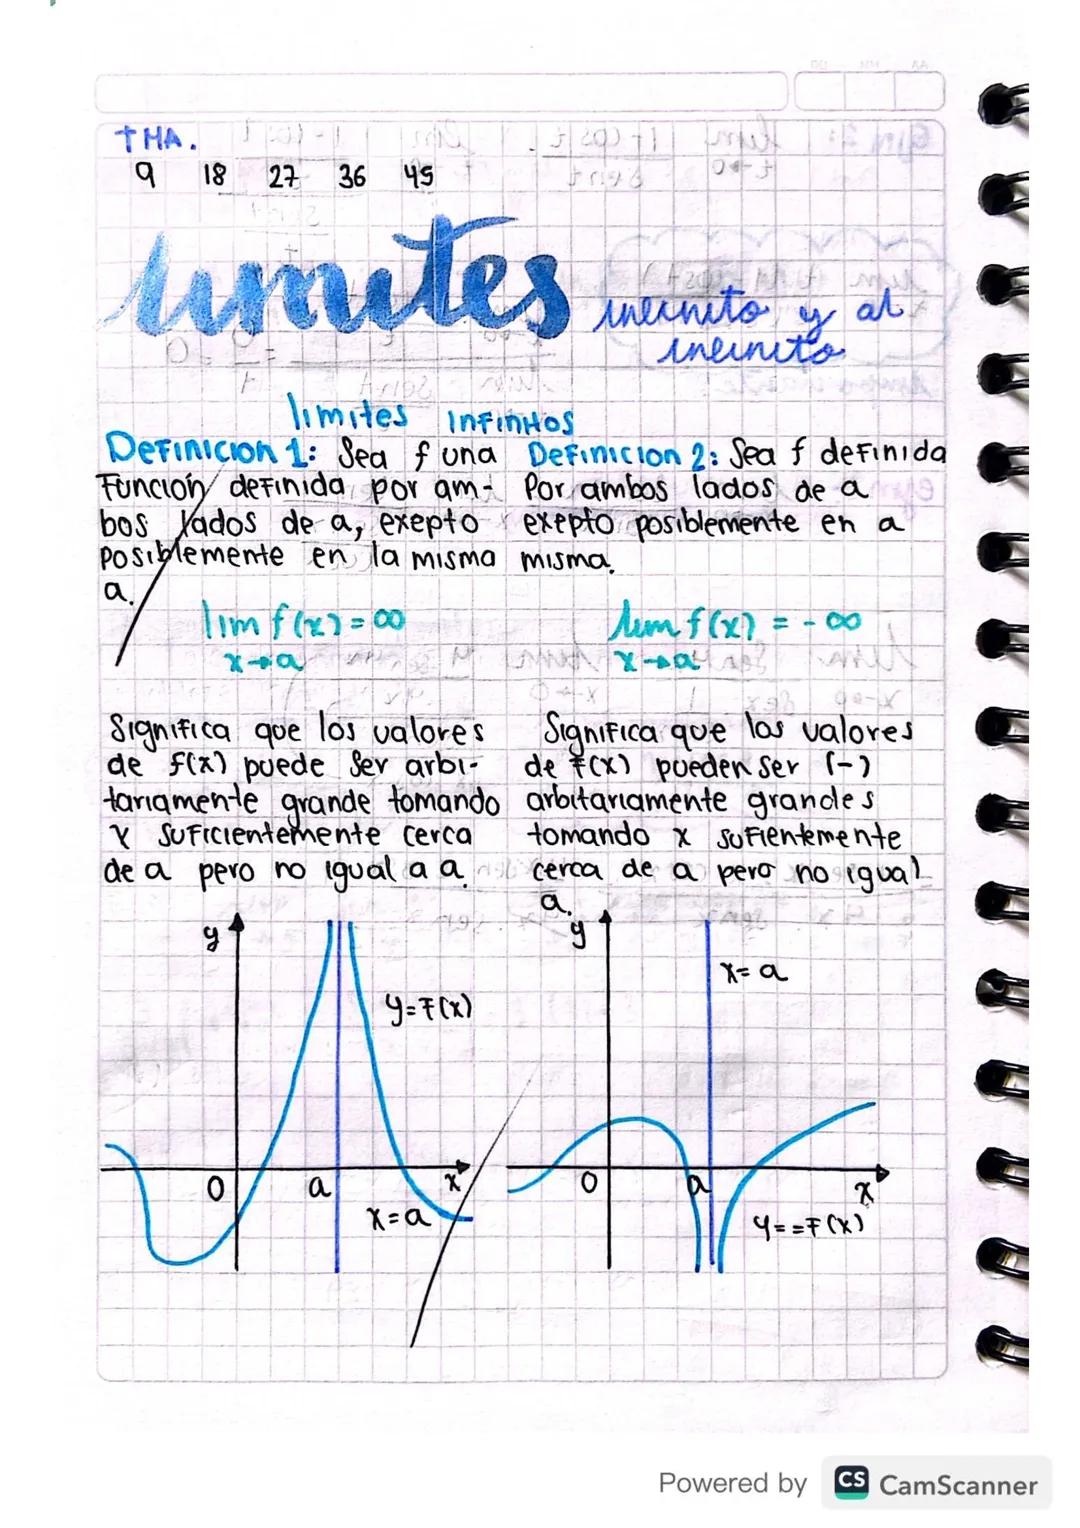 TMA.
9 18 27 36 45
límites infinito y al
infinito
limites INFINItOS
DEFINICION 1: Sea f una
Función definida por am-
bos lados de a, exepto
posiblemente en la misma
a.
lim f(x) = ∞
x→a
Significa que los valores
de f(x) puede ser arbi-
tariamente grande tomando
x suficientemente cerca
de a pero no igual a a.
DEFINICION 2: Sea f definida
Por ambos lados de a
exepto posiblemente en a
misma.
lim f(x) = - ∞
x→a
Significa que los valores
de f(x) pueden ser (-)
arbitariamente grandes
tomando x sufientemente
cerca de a pero no igual
a.
y
y=f(x)
0 a x
x=a
y
x=a
0 a x
y==f(x)
Powered by CS CamScanner